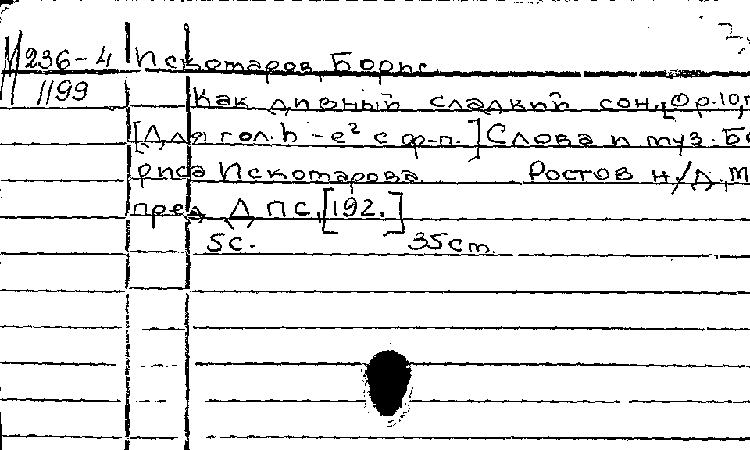 М 236-4 Искотаров, Борис
1199
Как дивный сладкий сон. [Ор.10,
[Для гол. h - e² с ф-п.] Слова и муз. Бо
риса Искотарова. Ростов н/Д, т
пред ДПС, [192.]
5с. 35cm